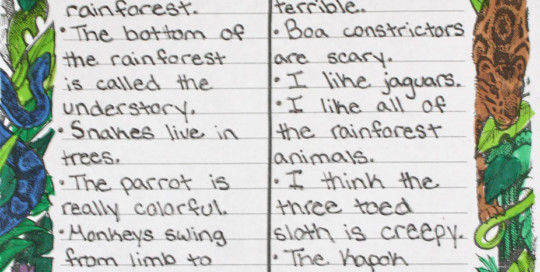 rainforest.
• The bottom of
the rainforest
is called the
understory.
• Snakes live in
trees.
• The parrot is
really colorful.
• Monkeys swing
from limb to
terrible.
• Boa constrictors
are scary.
• I like jaguars.
• I like all of
the rainforest
animals.
• I think the
three toed
sloth is creepy.
• The Kapok